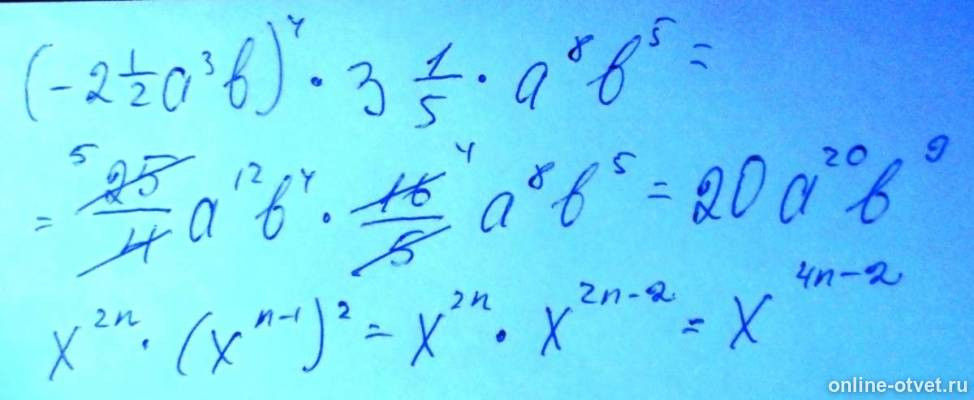 (-2 1/2 a³b)⁴ · 3 1/5 · a⁸b⁵ =
= ⁵ 25/4 a¹²b⁴ · 16/5 ⁴ a⁸b⁵ = 20a²⁰b⁹
x²ⁿ · (xⁿ⁻¹)² = x²ⁿ · x²ⁿ⁻² = x⁴ⁿ⁻²
online-otvet.ru